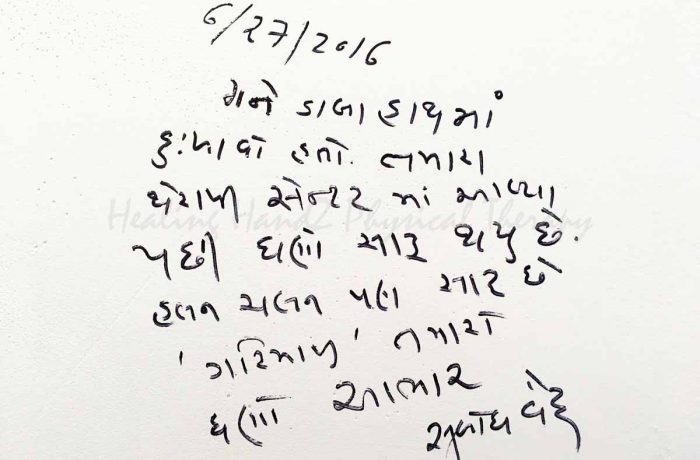 6/27/2016
મને ડાબા હાથમાં
દુઃખાવો હતો. તમારા
થેરાપી સેન્ટર માં આવ્યા
પછી ઘણો સારૂ થયુ છે.
હલન ચલન પણ સારૂ છે
'ગરિમાજી' તમારો
ઘણો આભાર
સુબોધ વૈદ્ય
Healing Handz Physical Therapy